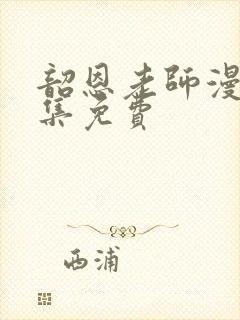 韶恩老师漫
集免費
西浦